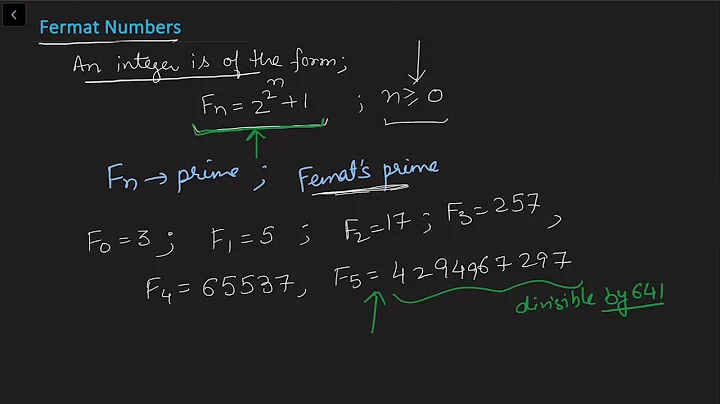 Fermat Numbers
An integer is of the form;
Fn = 2^2^n + 1 ; n ≥ 0
Fn → prime ; Femat's prime
F0 = 3 ; F1 = 5 ; F2 = 17 ; F3 = 257,
F4 = 65537, F5 = 4294967297
divisible by 641